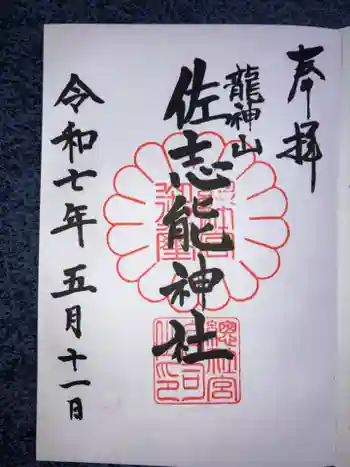 奉拝
龍神山
佐志能神社
令和七年五月十一日
總社宮